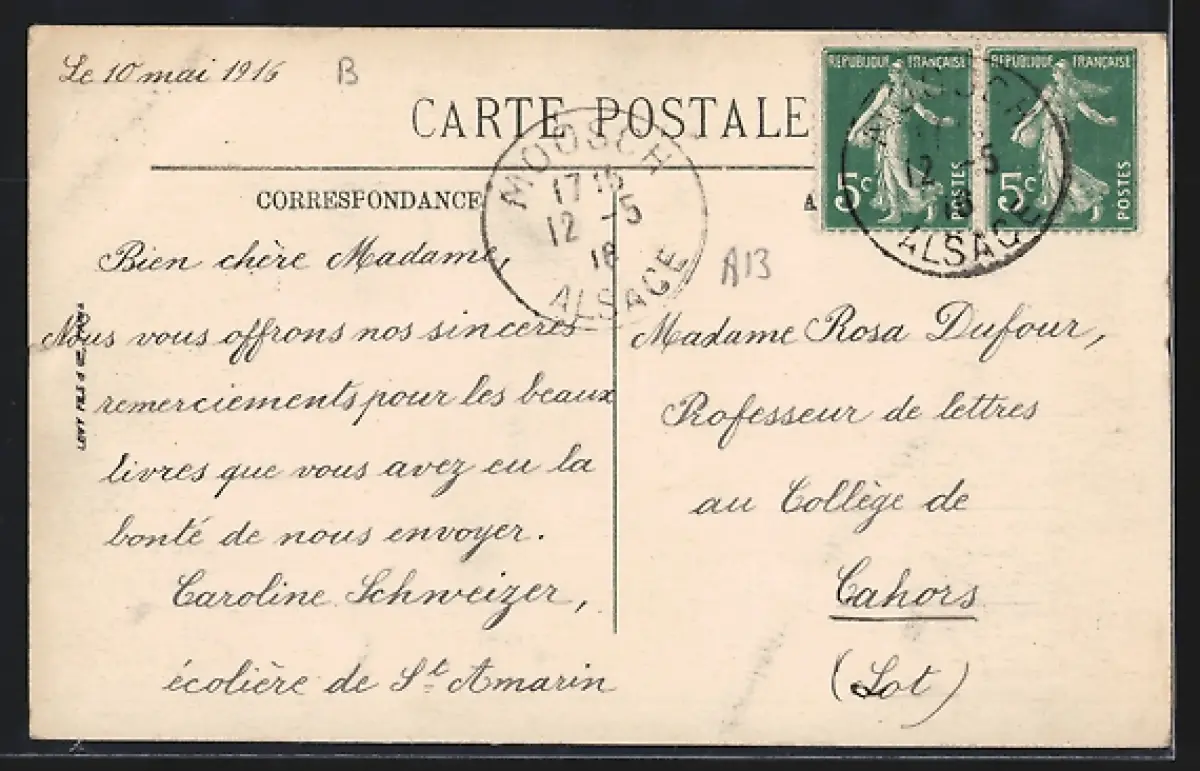 Le 10 mai 1916
B
CARTE POSTALE
CORRESPONDANCE
A
Bien chère Madame,
Nous vous offrons nos sinceres
remerciements pour les beaux
livres que vous avez eu la
bonté de nous envoyer.
Caroline Schweizer,
écolière de St Amarin
LEVY FILS & Cie, PARIS
MOOSCH
17 15
12 -5
16
ALSACE
A13
REPUBLIQUE FRANÇAISE
5c
POSTES
REPUBLIQUE FRANÇAISE
5c
POSTES
MOOSCH
12 -5
16
ALSACE
Madame Rosa Dufour,
Professeur de lettres
au Collège de
Cahors
(Lot)